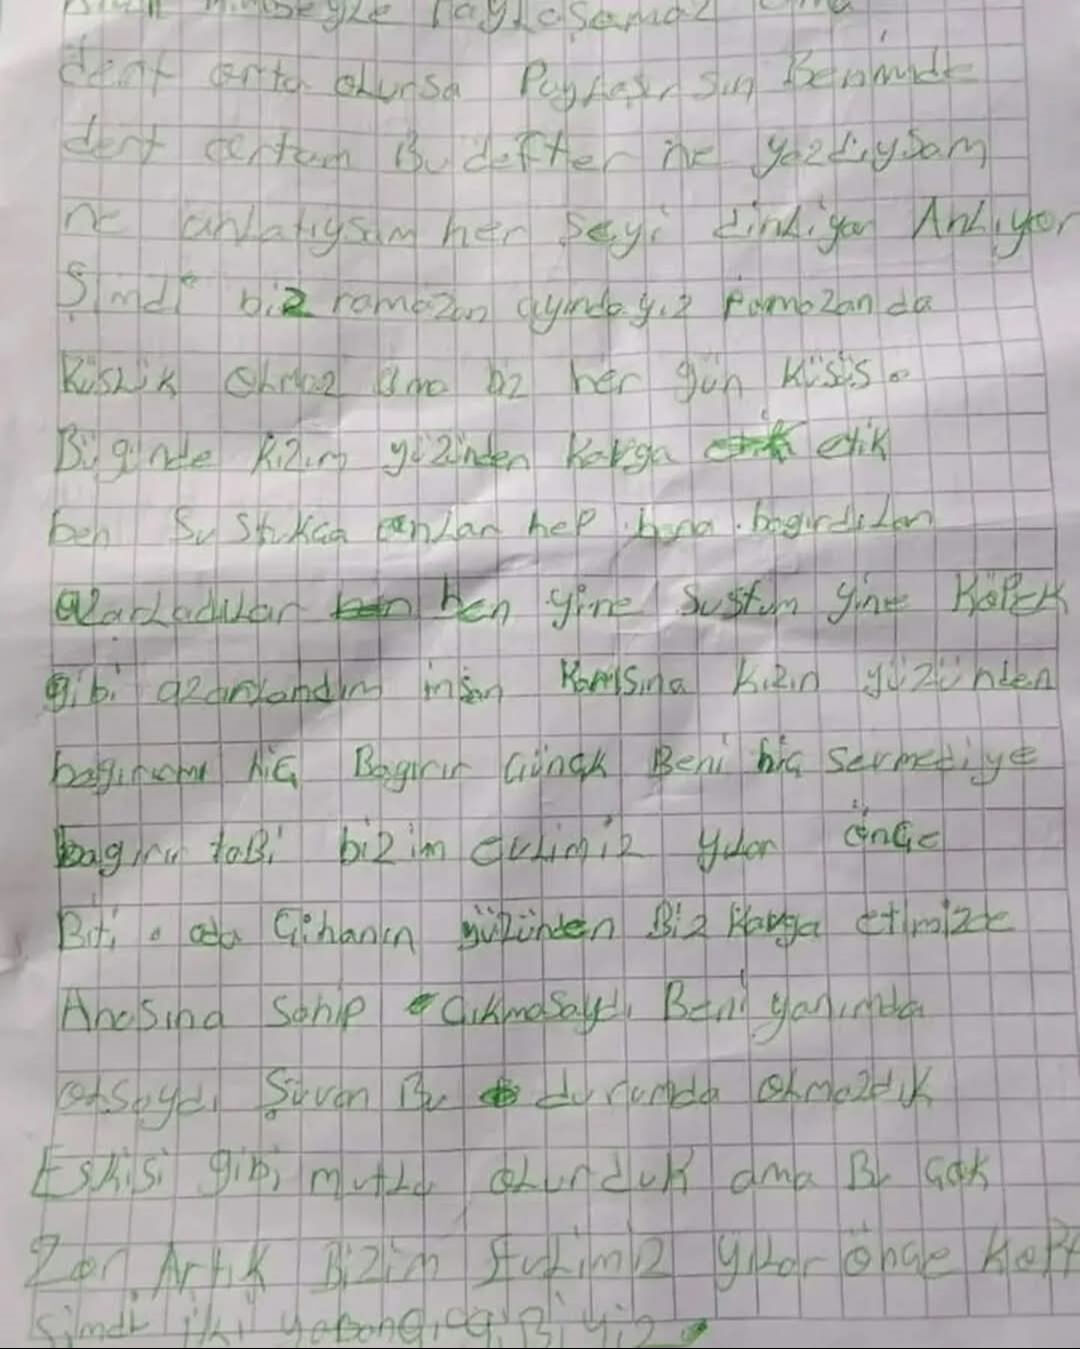 dert orta olursa Paylaşırsın Benimde
dert ortam Bu defter ne yazdıysam
ne anlatıysam her şeyi dinliyor Anlıyor
Şimdi biz ramazan ayındayız Ramazanda
Küslük olmaz ama biz her gün küsüs.
Bügünde kızım yüzünden kavga etik
ben Sustukca onlar hep bana bagırdılar
azarladılar ben yine Sustum yine Köpek
gibi azarlandım insan Karısına kızın yüzünden
bagırırmı hiç Bagırır Günqk Beni hiç sevmediye
bagırır tabi bizim evlimiz yılar önçe
Biti. oda Cihanın yüzünden Biz Kavga etimizde
Anasına Sahip Cıkmasaydı Beni yanımda
olsaydı Şuvan Bu durumda olmazdık
Eskisi gibi mutlu olurduk ama Bu çok
Zor Artık Bizim Evlimiz yılar önçe
Şimdi iki yabançı gibiyiz.